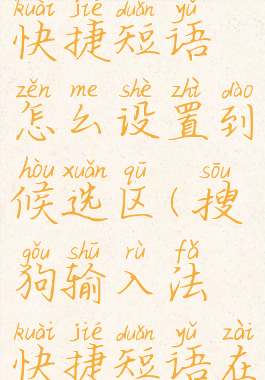 kuài jié duǎn yǔ
快捷短语
zěn me shè zhì dào
怎么设置到
hòu xuǎn qū sōu
候选区(搜
gǒu shū rù fǎ
狗输入法
kuài jié duǎn yǔ zài
快捷短语在